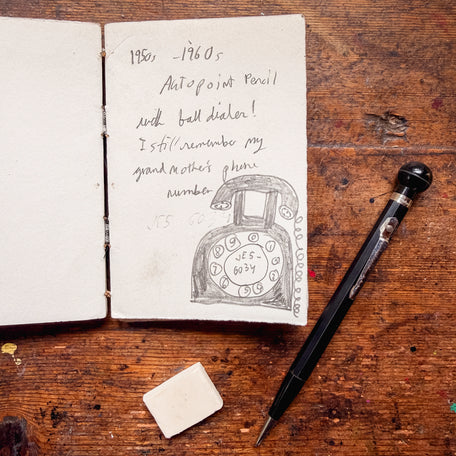 1950s - 1960s
Autopoint Pencil
with ball dialer!
I still remember my
grandmother's phone
number
JES 60
JES-
6034